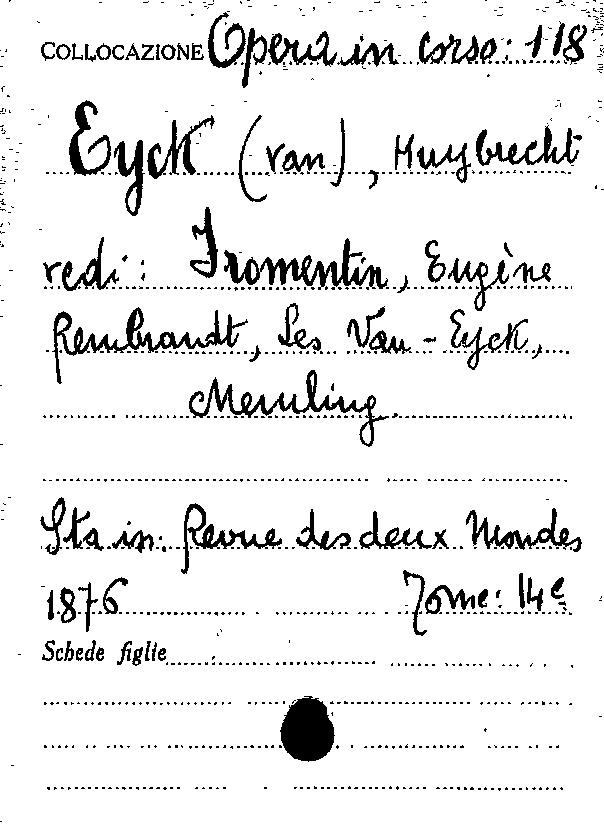 COLLOCAZIONE Opera in corso: 118
Eyck (van), Huybrecht
vedi: Fromentin, Eugène
Rembrandt, Les Van-Eyck,
Memling.
Sta in: Revue des deux Mondes
1876 Tome: 14e
Schede figlie